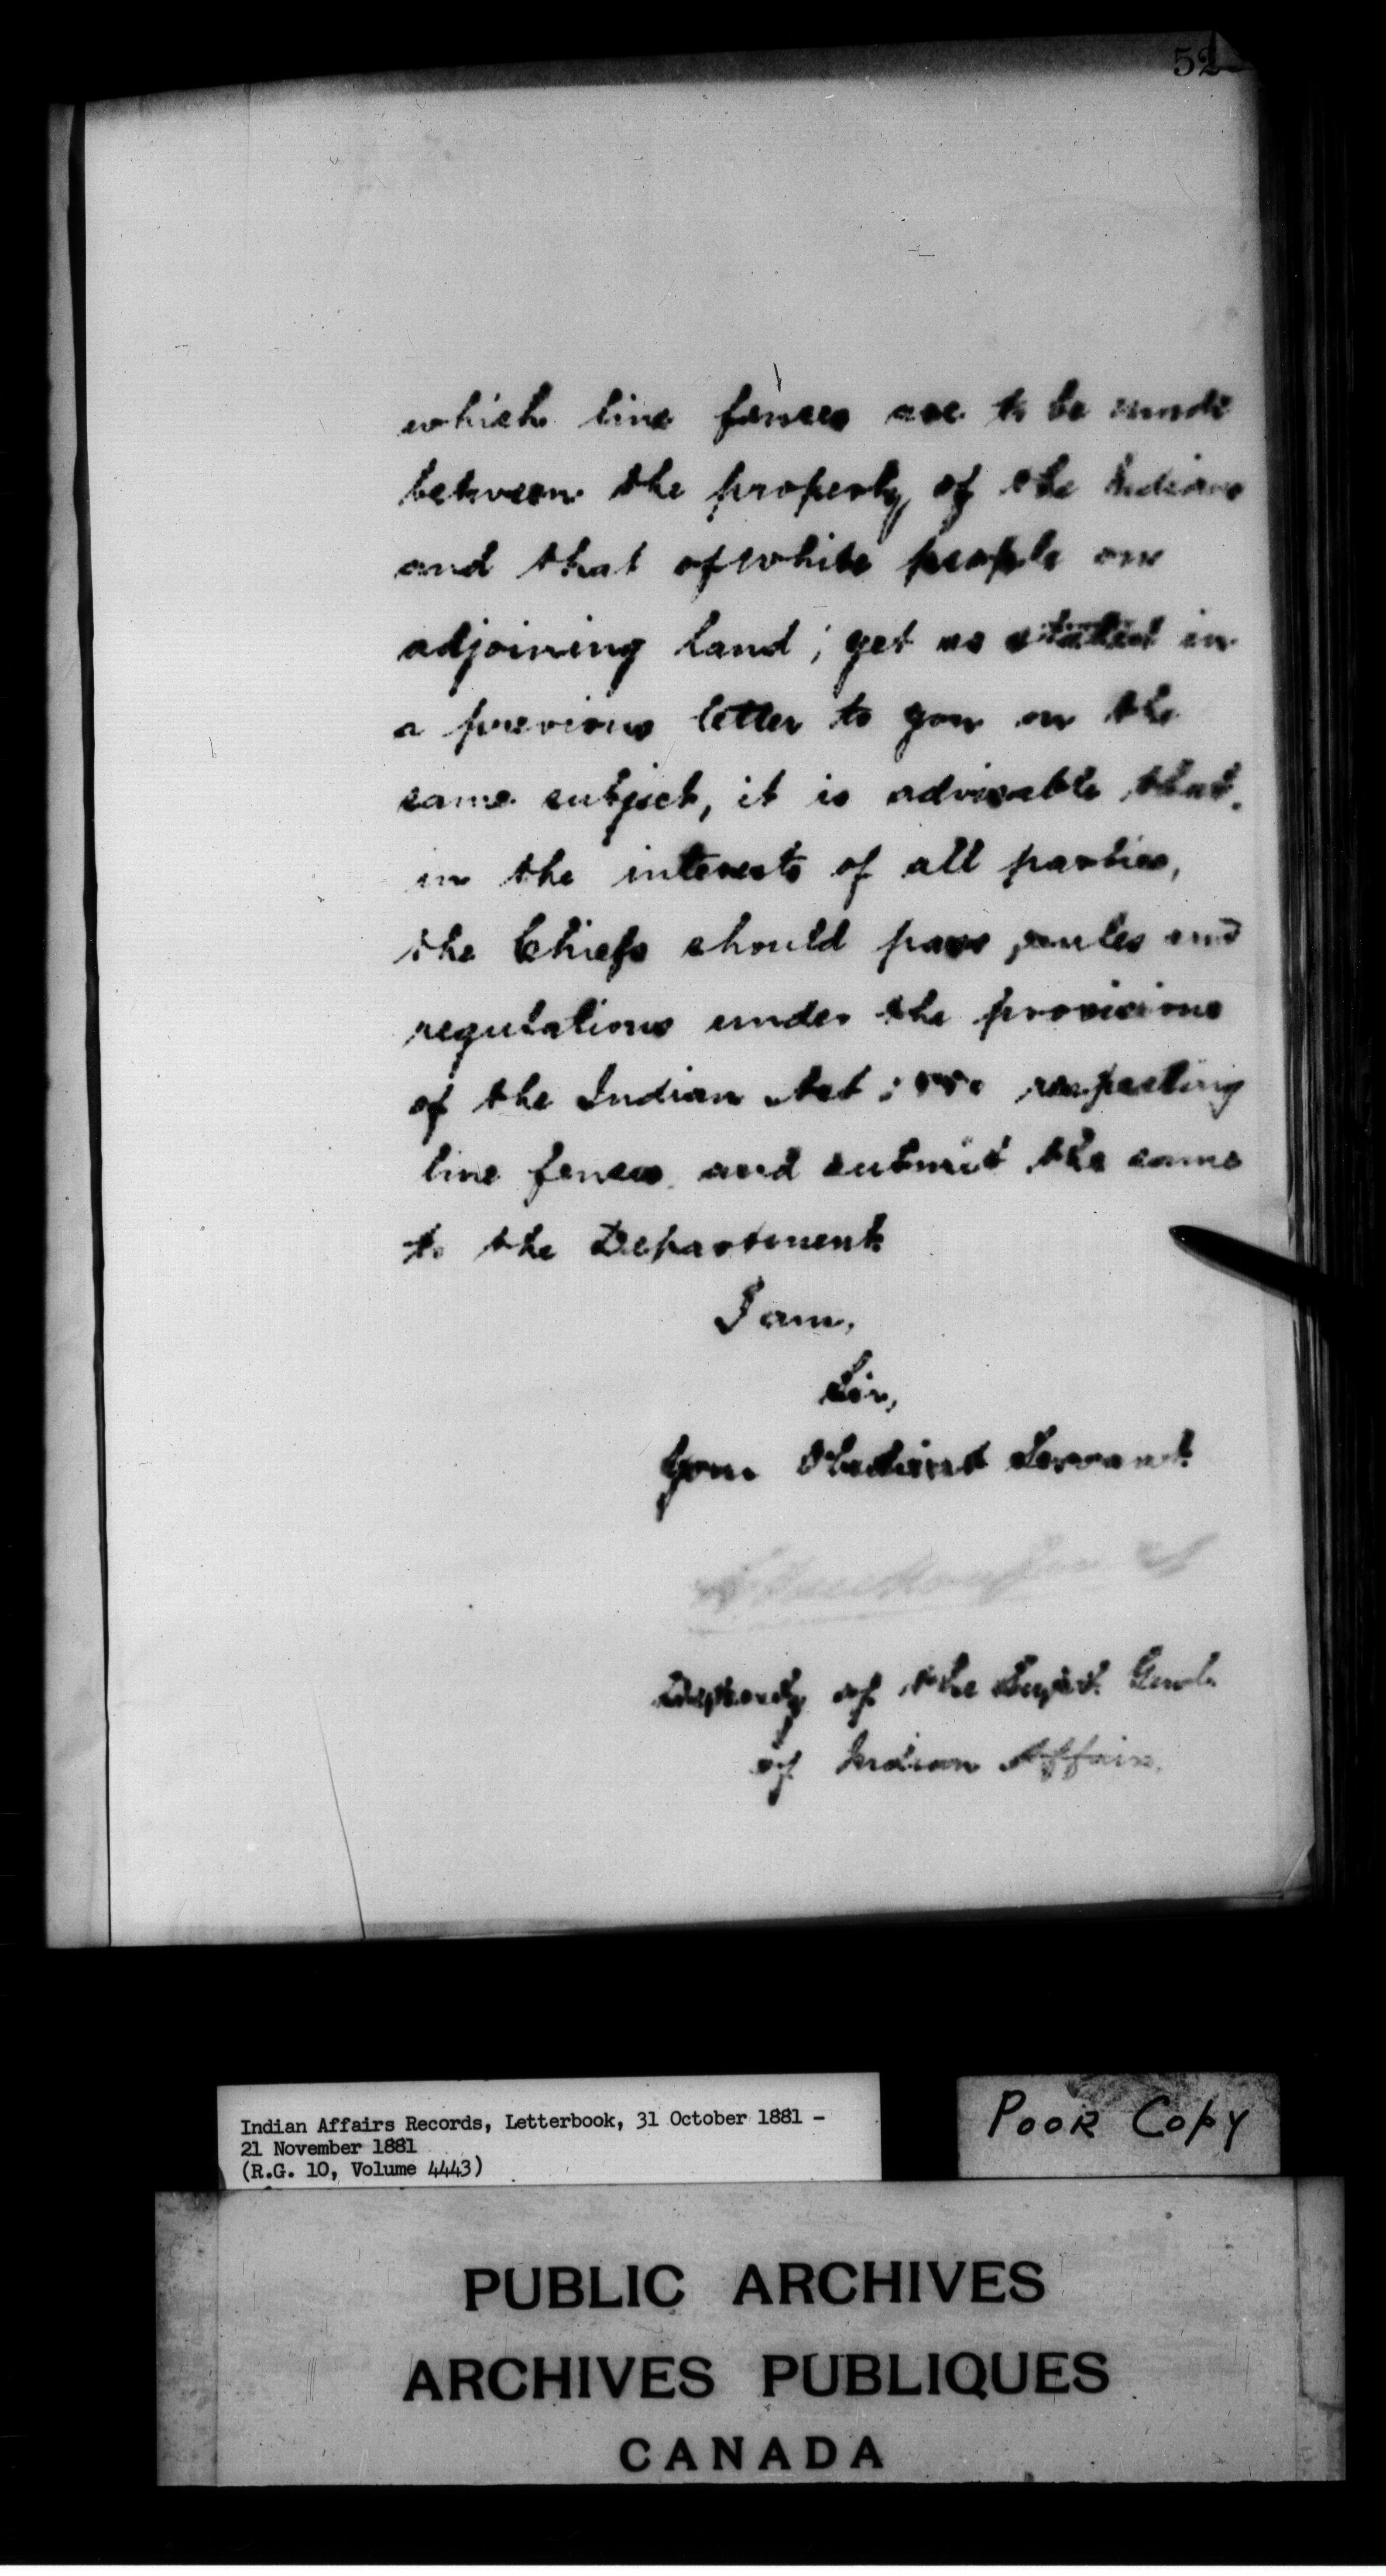 52
which line fences are to be made
between the property of the Indians
and that of white people on
adjoining land; yet as stated in
a previous letter to you on the
same subject, it is advisable that,
in the interests of all parties,
the Chiefs should pass rules and
regulations under the provisions
of the Indian Act 1880 respecting
line fences and submit the same
to the Department
I am,
Sir,
Your Obedient Servant
Deputy of the Supt. Genl.
of Indian Affairs.
Indian Affairs Records, Letterbook, 31 October 1881 -
21 November 1881
(R.G. 10, Volume 4443)
POOR COPY
PUBLIC ARCHIVES
ARCHIVES PUBLIQUES
CANADA